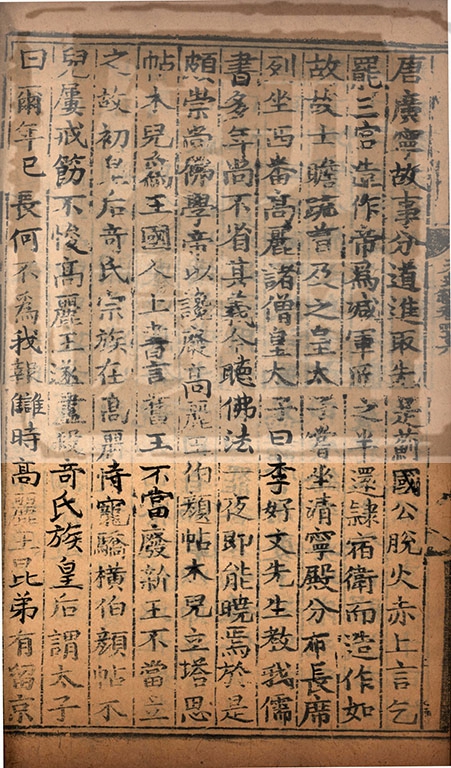 唐廣寧故事分道進取先是薊國公脫火赤上言乞
罷三宮造作帝爲減軍匠之半還隸宿衛而造作如
故故士瞻疏首及之皇太子嘗坐清寧殿分布長席
列坐西番高麗諸僧皇太子曰李好文先生教我儒
書多年尚不省其義今聽佛法一夜即能曉焉於是
頗崇尚佛學帝以讒廢高麗王伯顏帖木兒立塔思
帖木兒爲王國人上書言舊王不當廢新王不當立
之故初皇后奇氏宗族在高麗恃寵驕橫伯顏帖木
兒屢戒飭不悛高麗王遂盡殺奇氏族皇后謂太子
曰爾年已長何不爲我報讎時高麗王昆弟有留京